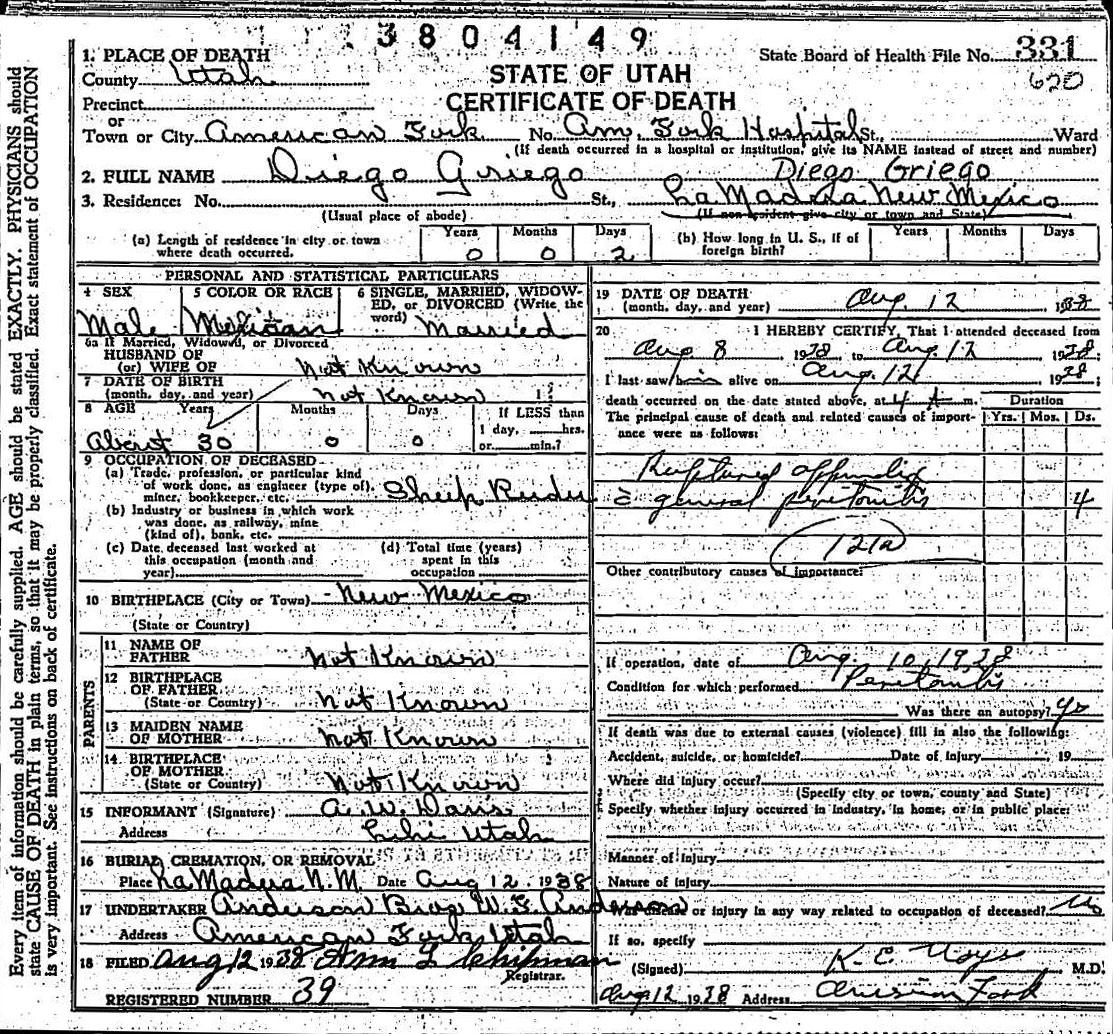 3804149
1. PLACE OF DEATH
State Board of Health File No. 331
County Utah
STATE OF UTAH
620
Precinct
CERTIFICATE OF DEATH
or
Town or City American Fork No. Am. Fork Hospital St., Ward
(If death occurred in a hospital or institution, give its NAME instead of street and number)
2. FULL NAME Diego Griego Diego Griego
3. Residence: No. St., La Madera New Mexico
(Usual place of abode) (If non-resident give city or town and State)
(a) Length of residence in city or town where death occurred. Years 0 Months 0 Days 2 (b) How long in U. S., if of foreign birth? Years Months Days
PERSONAL AND STATISTICAL PARTICULARS
4 SEX 5 COLOR OR RACE 6 SINGLE, MARRIED, WIDOWED, OR DIVORCED (Write the word)
Male Mexican Married
6a If Married, Widowed, or Divorced
HUSBAND OF
(or) WIFE OF Not Known
7 DATE OF BIRTH
(month, day, and year) Not Known 1
8 AGE Years Months Days If LESS than
1 day, hrs.
About 30 0 0 or min.?
9 OCCUPATION OF DECEASED
(a) Trade, profession, or particular kind
of work done, as engineer (type of),
miner, bookkeeper, etc. Sheep
(b) Industry or business in which work
was done, as railway, mine
(kind of), bank, etc.
(c) Date deceased last worked at
this occupation (month and
year)
(d) Total time (years)
spent in this
occupation
10 BIRTHPLACE (City or Town) New Mexico
(State or Country)
PARENTS
11 NAME OF
FATHER Not Known
12 BIRTHPLACE
OF FATHER
(State or Country) Not Known
13 MAIDEN NAME
OF MOTHER Not Known
14 BIRTHPLACE
OF MOTHER
(State or Country) Not Known
15 INFORMANT (Signature) A. W. Davis
Address Lehi Utah
16 BURIAL, CREMATION, OR REMOVAL
Place La Madera N.M. Date Aug 12 1938
17 UNDERTAKER Anderson Bros W. E. Anderson
Address American Fork Utah
18 FILED Aug 12 1938 L Chipman
Registrar.
REGISTERED NUMBER 39
19 DATE OF DEATH
(month, day, and year) Aug. 12 1938
20 I HEREBY CERTIFY, That I attended deceased from
Aug 8 1938 to Aug. 12 1938;
I last saw him alive on Aug. 12 1938;
death occurred on the date stated above, at 4 A m. Duration
The principal cause of death and related causes of importance were as follows: Yrs. Mos. Ds.
Ruptured appendix
c̄ general peritonitis 4
(121a)
Other contributory causes of importance:
If operation, date of Aug. 10, 1938
Condition for which performed Peritonitis
Was there an autopsy?
If death was due to external causes (violence) fill in also the following:
Accident, suicide, or homicide? Date of injury , 19
Where did injury occur?
(Specify city or town, county and State)
Specify whether injury occurred in industry, in home, or in public place:
Manner of injury
Nature of injury
or injury in any way related to occupation of deceased? No
If so, specify
(Signed) K. E. Noyes M.D.
Aug 12 1938 Address American Fork
Every item of information should be carefully supplied. AGE should be stated EXACTLY. PHYSICIANS should
state CAUSE OF DEATH in plain terms, so that it may be properly classified. Exact statement of OCCUPATION
is very important. See instructions on back of certificate.